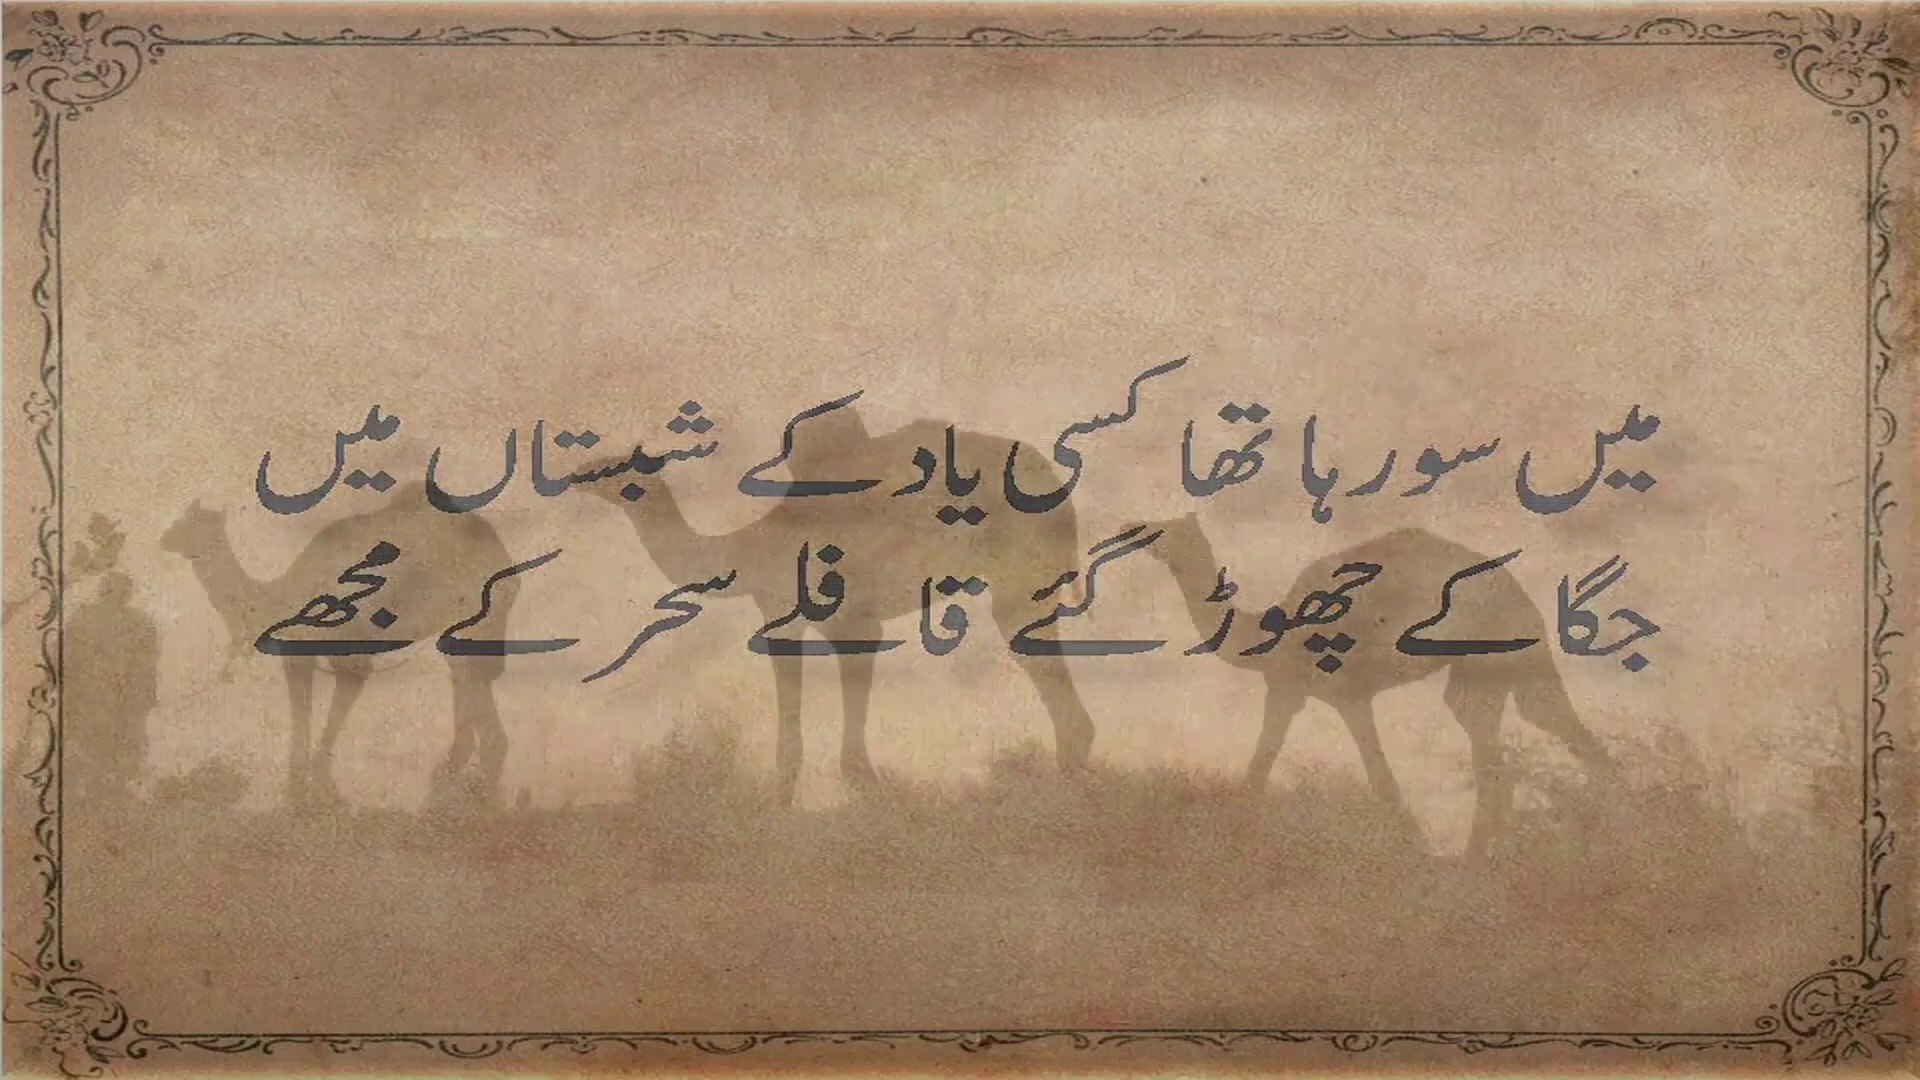 میں سو رہا تھا کسی یاد کے شبستاں میں
جگا کے چھوڑ گئے قافلے سحر کے مجھے